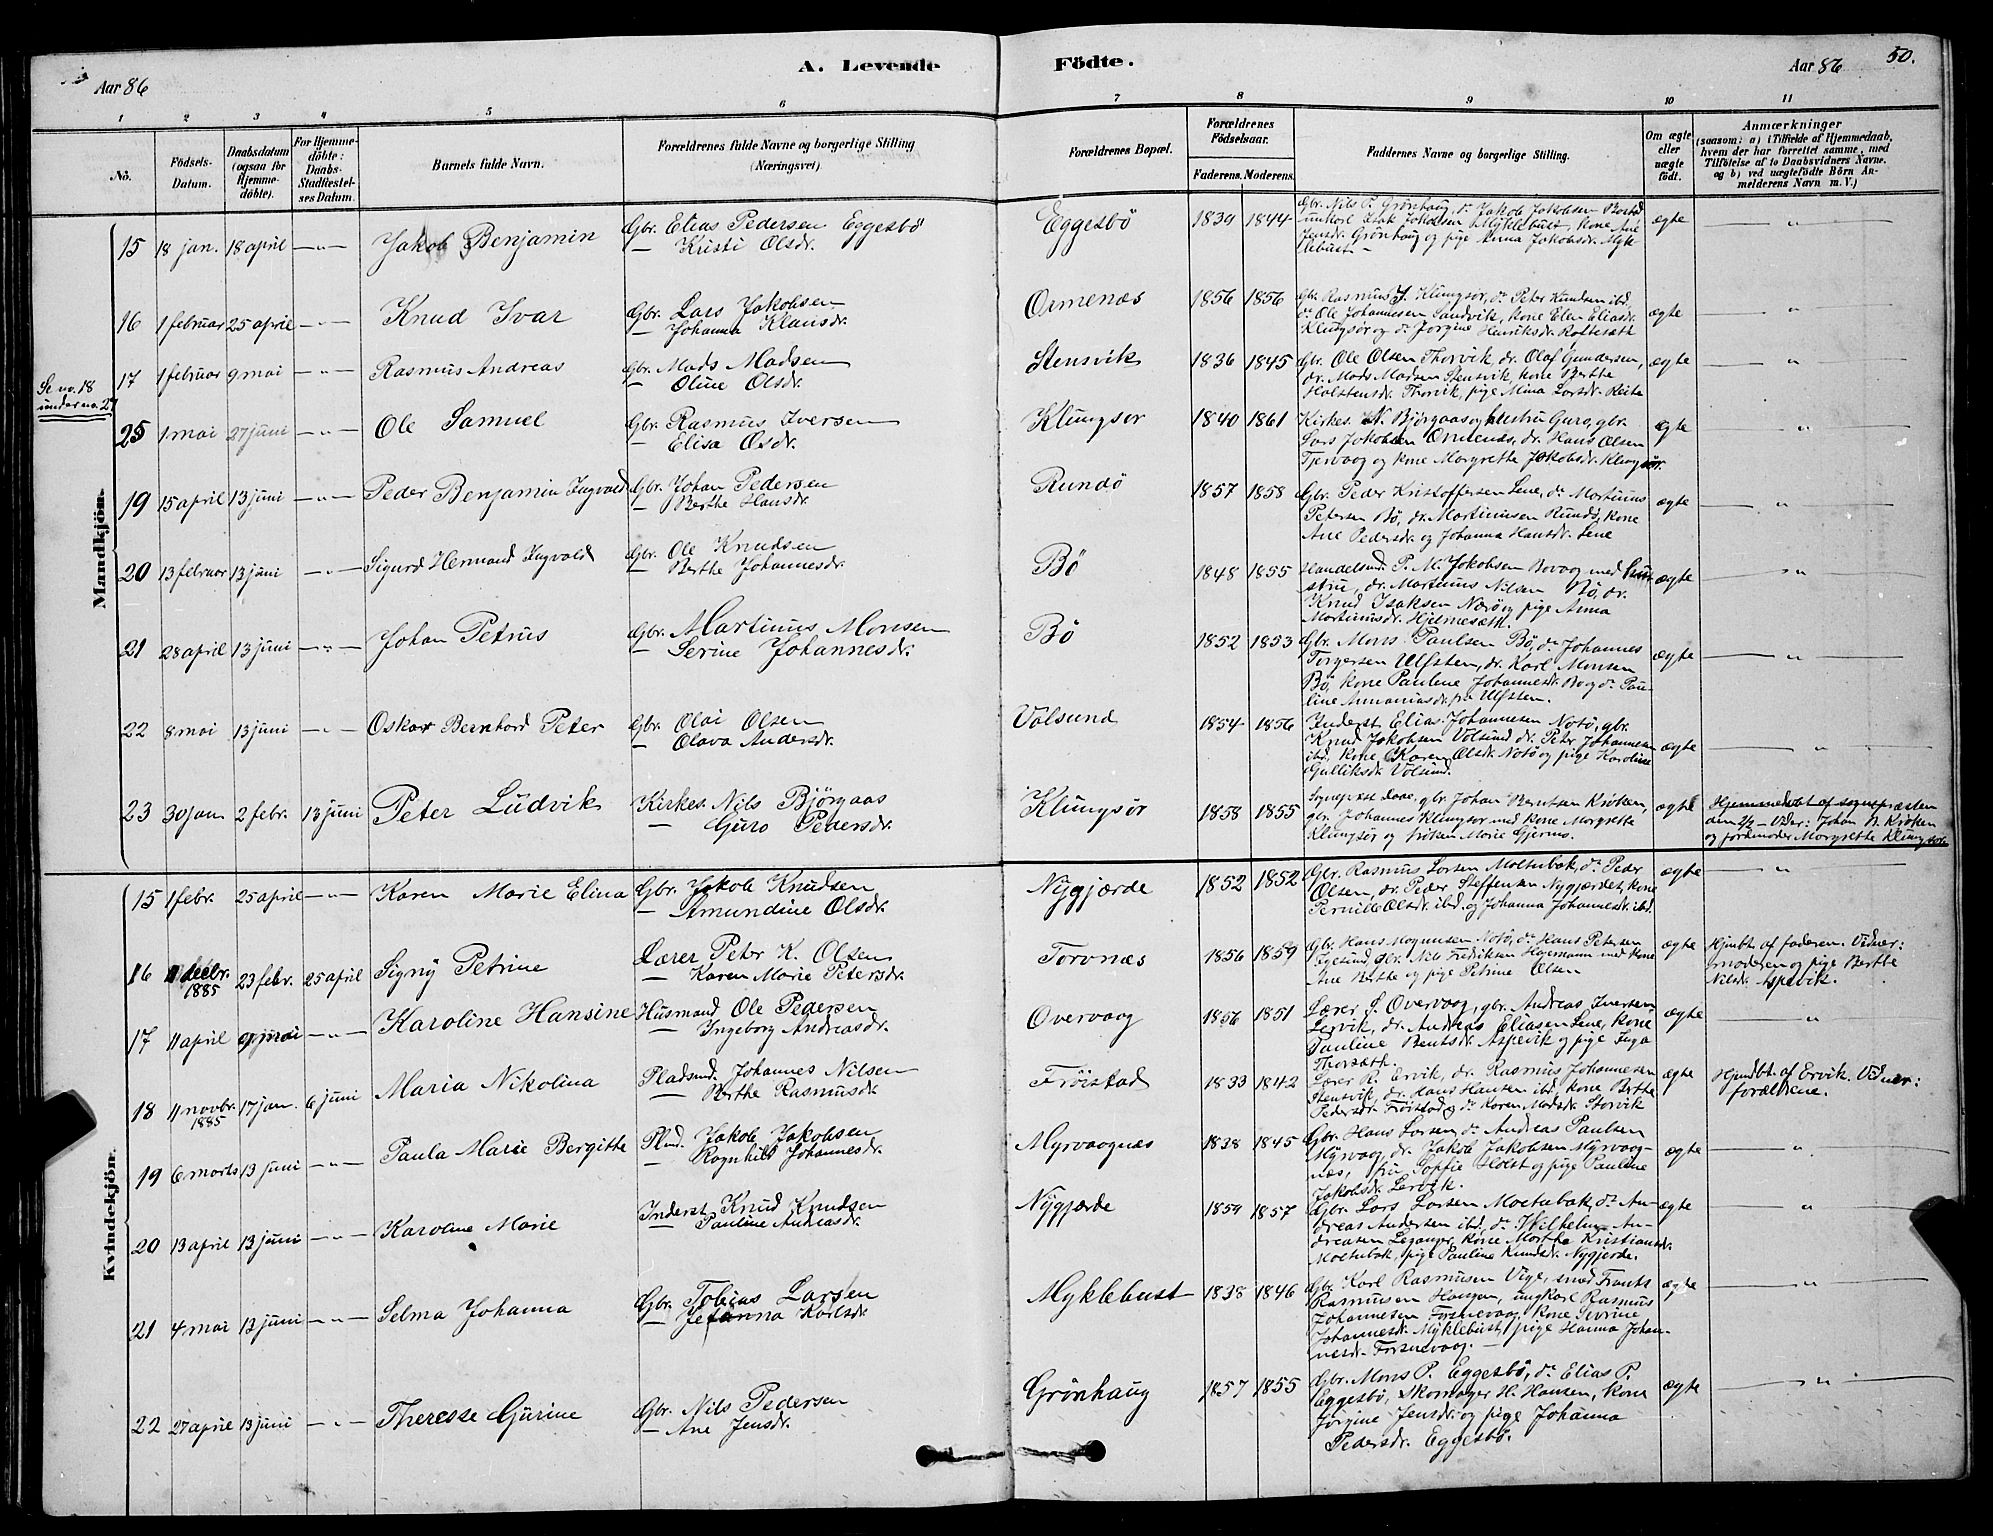 A. Levende
Födte.
Aar 86
Aar 86
50.
1
2
3
4
5
6
7
8
9
10
11
No.
Födsels-
Datum.
Daabsdatum
(ogsaa for
Hjemme-
döbte).
For Hjemme-
döbte:
Daabs-
Stadfæstel-
ses Datum.
Barnets fulde Navn.
Forældrenes fulde Navne og borgerlige Stilling
(Næringsvei).
Forældrenes Bopæl.
Forældrenes
Födselsaar.
Faderens. Moderens.
Faddernes Navne og borgerlige Stilling.
Om ægte
eller
uægte
født.
Anmærkninger
(saasom: a) i Tilfælde af Hjemmedaab,
hvem der har forrettet samme, med
Tilföielse af to Daabsvidners Navne,
og b) ved uægtefödte Börn An-
melderens Navn m. V.)
Mandkjön.
15 18 jan. 18 april —"— Jakob Benjamin
Gbr. Elias Pedersen Eggesbö
— Kristi Olsdr.
Eggesbö 1834 1844
Gbr. Nils P. Grönhaug, do Jakob Jakobsen
ungkarl Isak Jakobsen Myklebust, kone Ane
Jensdr. Grönhaug og pige Anna Jakobsdr. Myk-
lebust—
ægte —"—
16 1 februar 25 april —"— Knud Ivar
Gbr. Lars Jakobsen
— Johanna Klausdr.
Ormenæs 1856 1856
Gbr. Rasmus J. Klungsör, do Peter Knudsen ibd.
do Ole Johannesen Sandvik, kone Elen Eliasdr.
Klungsör og do Jorgine Henriksdr. Roltesæth
ægte —"—
17 1 februar 9 mai —"— Rasmus Andreas
Gbr. Mads Madsen
— Oline Olsdr.
Stensvik 1836 1845
Gbr. Ole Olsen Thorvik, dr. Olaf Gundersen,
dr. Mads Madsen Stensvik, kone Berthe
Holstensdr. Thorvik, pige Mina Larsdr.
ægte —"—
Se no. 18
under no. 27
25 1 mai 27 juni —"— Ole Samuel
Gbr. Rasmus Iversen
— Elisa Osdr.
Klungsör 1840 1861
Kirkes. N. Björgaas og hustru Guro, gbr.
Lars Jakobsen Ormenæs, dr. Hans Olsen
Tjervaag og kone Margrethe Jakobsdr. Klungsör.
ægte —"—
19 15 april 13 juni —"— Peder Benjamin Ingvald
Gbr. Johan Pedersen
— Berthe Hansdr.
Rundö 1857 1858
Gbr. Peder Kristoffersen Sene, do Martinus
Petersen Bö, dr. Martinusen Rundö, kone
Ane Pedersdr. og Johanna Hansdr. Sene
ægte —"—
20 13 februar 13 juni —"— Sigurd Hermand Ingvald
Gbr. Ole Knudsen
— Berthe Johannesdr.
Bö 1848 1855
Handelsmd. P. M. Jakobsen Bovaag med hu-
stru, dr. Martinus Nilsen Bö, dr.
Knud Isaksen Nærö og pige Anna
Martinusdr. Hjelmesæth.
ægte —"—
21 28 april 13 juni —"— Johan Petrus
Gbr. Martinus Monsen
— Serine Johannesdr.
Bö 1852 1853
Gbr. Mons Paulsen Bö, do Johannes
Torgersen Ulfsten, dr. Karl Monsen
Bö, kone Pauline Johannesdr. Bö og do Pau-
line Annaniasdr. fra Ulfsten.
ægte —"—
22 8 mai 13 juni —"— Oskar Bernhard Peter
Gbr. Olai Olsen
— Olava Andersdr.
Volsund 1854 1856
Inderst Elias Johannesen Notö, gbr.
Knud Jakobsen Volsund dr. Peter Johannesen
ibd, kone Karen Olsdr. Notö og pige Karoline
Gulliksdr. Volsund.
ægte —"—
23 30 jan 2 febr. 13 juni Peter Ludvik
Kirkes. Nils Björgaas
— Guro Pedersdr.
Klungsör 1858 1855
Sognepræst Daae, gbr. Johan Berntsen Kröken,
gbr. Johannes Klungsör med kone Margrethe
Klungsör og fröken Marie Gjerms.
ægte
Hjemmedöbt af sognepræsten
den 2/2 — Vidner: Johan B. Kröken
og jordemoder Margrethe Klungsör.
Kvindekjön.
15 1 febr. 25 april —"— Karen Marie Elina
Gbr. Jakob Knudsen
— Amundine Olsdr.
Nygjærde 1852 1852
Gbr. Rasmus Larsen Moltubak, do Peder
Olsen, dr. Peder Steffensen Nygjærdet, kone
Pernille Olsdr. ibd. og Johanna Johannesdr. ibd.
ægte —"—
16 1885 23 febr. 25 april Signy Petrine
Lærer Peter K. Olsen
— Karen Marie Petersdr.
Torvnæs 1856 1859
Gbr. Hans Mogensen Notö, do Hans Petersen
Egelund, gbr. Nils Fredriksen Hagemann med kone
Ane Berthe og pige Petrine Olsen
ægte
Hjmbt. af faderen. Vidner:
moderen og pige Berthe
Nilsdr. Aspevik.
17 11 april 9 mai —"— Karoline Hansine
Husmand Ole Pedersen
— Ingeborg Andreasdr.
Overvaag 1856 1851
Lærer S. Overvaag, gbr. Andreas Iversen
Lervik, dr. Andreas Eliasen Sene, kone
Pauline Bentsdr. Aspevik og pige Inga
Thorsæth.
ægte —"—
18 11 novbr. 1885 17 jan. 6 juni Maria Nikolina
Pladsmd. Johannes Nilsen
— Berthe Rasmusdr.
Fröistad 1833 1842
Lærer R. Ervik, dr. Rasmus Johannesen
Stensvik, dr. Hans Hansen ibd, kone Berthe
Pedersdr. Fröistad og do Karen Madsdr. Storvik
ægte
Hjmdbt. af Ervik. Vidner:
forældrene.
19 6 marts 13 juni —"— Paula Marie Bergitte
Plmd. Jakob Jakobsen
— Ragnhild Johannesdr.
Myrvaagnæs 1838 1845
Gbr. Hans Larsen, do Andreas Paulsen
Myrvaag, dr. Jakob Jakobsen Myrvaag-
næs, fru Sopfie Holst og pige Pauline
Jakobsdr. Lervik.
ægte —"—
20 13 april 13 juni —"— Karoline Marie
Inderst Knud Knudsen
— Pauline Andreasdr.
Nygjærde 1859 1857
Gbr. Lars Larsen Moltubak, do An-
dreas Andersen ibd, do Vilhelm An-
dreasen Leganger, kone Marthe Kristiansdr.
Moltubak, pige Pauline Knudsdr. Nygjerde.
ægte —"—
21 4 mai 13 juni —"— Selma Johanna
Gbr. Tobias Larsen
— Johanna Karlsdr.
Myklebust 1838 1846
Gbr. Karl Rasmusen Vige, smed Frants
Rasmusen Haugen, ungkarl Rasmus
Johannesen Fosnevaag, kone Severine
Johannesdr. Myklebust, pige Hanna Johan-
nesdr. Fosnevaag.—
ægte —"—
22 27 april 13 juni —"— Therese Gurine
Gbr. Nils Pedersen
— Ane Jensdr.
Grönhaug 1857 1855
Gbr. Mons P. Eggesbö, do Elias P.
Eggesbö, Skomager H. Hansen, kone
Jörgine Jensdr. og pige Johanna
Pedersdr. Eggesbö.
ægte —"—